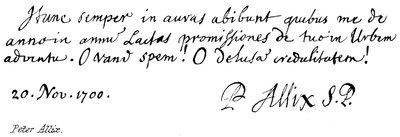 Itane semper in auras abibunt quibus me de
anno in annū Lactas promissiones de tuo in Urbem
adventu. O vanā spem! O delusā credulitatem!
20. Nov. 1700. P. Allix S.P.
Peter Allix.